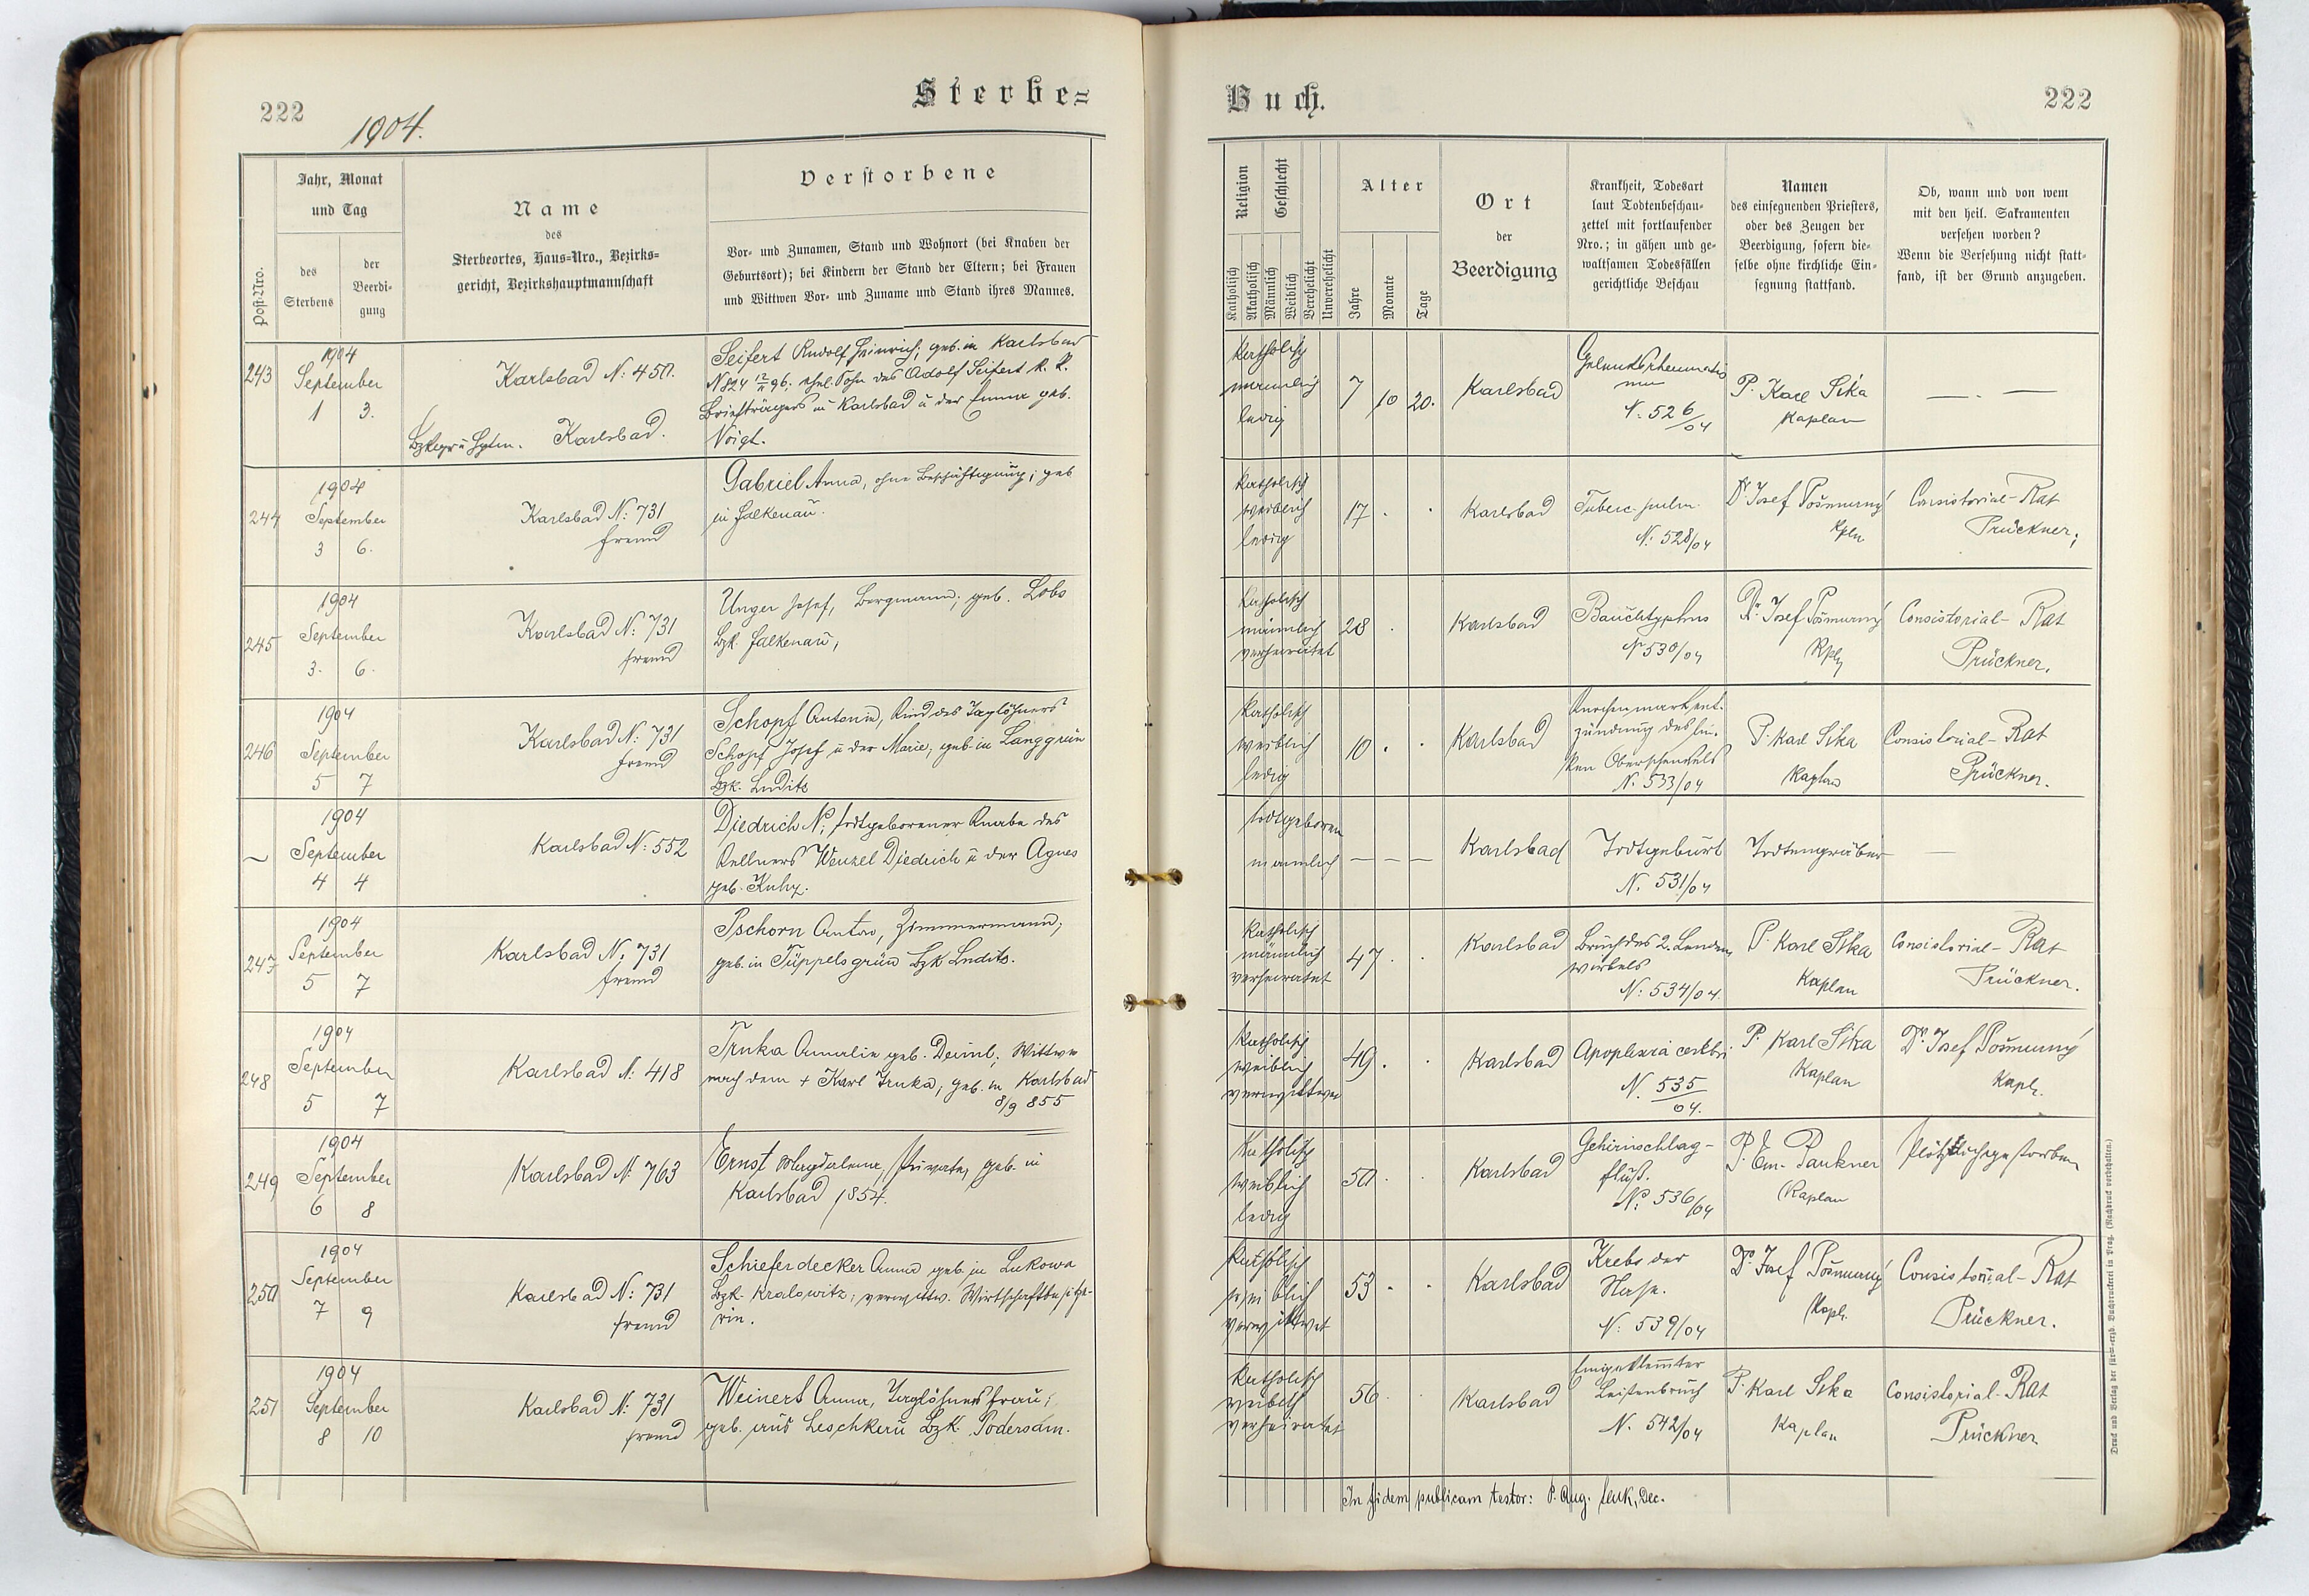 222
1904.
Sterbe=
Post-Nro.
Jahr, Monat
und Tag
des
Sterbens
der
Beerdi-
gung
Name
des
Sterbeortes, Haus=Nro., Bezirks=
gericht, Bezirkshauptmannschaft
Verstorbene
Vor- und Zunamen, Stand und Wohnort (bei Knaben der
Geburtsort); bei Kindern der Stand der Eltern; bei Frauen
und Wittwen Vor- und Zuname und Stand ihres Mannes.
243
1904
September
1 3.
Karlsbad N: 450.
Karlsbad.
Seifert Rudolf Heinrich; geb. in Karlsbad
N 824 12/ 96. ehel. Sohn des Adolf Seifert k. k.
Briefträgers in Karlsbad ū der Emma geb.
Voigt.
244
1904
September
3 6.
Karlsbad N: 731
fremd
Gabriel Anna, ohne Beschäftigung; geb
in Falkenau.
245
1904
September
3. 6.
Karlsbad N: 731
fremd
Unger Josef, Bergmann; geb. Lobs
Bzk. Falkenau,
246
1904
September
5 7
Karlsbad N: 731
fremd
Schopf Antonia, Kind des Taglöhners
Schopf Josef ū der Marie, geb. in Langgrün
Bzk. Luditz
—
1904
September
4 4
Karlsbad N: 552
Diedrich N; todtgeborener Knabe des
Kellners Wenzel Diedrich ū der Agnes
geb. Kuhy.
247
1904
September
5 7
Karlsbad N: 731
fremd
Pschorn Anton, Zimmermann;
geb. in Tüppelsgrün Bzk Luditz.
248
1904
September
5 7
Karlsbad N: 418
Trnka Amalie geb. Deiml; Wittwe
nach dem + Karl Trnka; geb. in Karlsbad
8/9 855
249
1904
September
6 8
Karlsbad N: 763
Ernst Magdalena, Private, geb. in
Karlsbad 1854.
250
1904
September
7 9
Karlsbad N: 731
fremd
Schieferdecker Anna geb. in Lukowa
Bzk. Kralowitz; verwittw. Wirtschaftbesitze-
rin.
251
1904
September
8 10
Karlsbad N: 731
fremd
Weinert Anna, Taglöhners frau;
geb. aus Leschkau Bzk. Podersam.
Buch.
222
Religion
Geschlecht
Katholisch
Akatholisch
Männlich
Weiblich
Verehelicht
Unverehelicht
Alter
Jahre
Monate
Tage
Ort
der
Beerdigung
Krankheit, Todesart
laut Todtenbeschau-
zettel mit fortlaufender
Nro.; in gähen und ge-
waltsamen Todesfällen
gerichtliche Beschau
Namen
des einsegnenden Priesters,
oder des Zeugen der
Beerdigung, sofern die-
selbe ohne kirchliche Ein-
segnung stattfand.
Ob, wann und von wem
mit den heil. Sakramenten
versehen worden?
Wenn die Versehung nicht statt-
fand, ist der Grund anzugeben.
katholisch
männlich
ledig
7 10 20.
Karlsbad
Gelenksrheumatis
mus
N. 526/04
P. Karl Sika
Kaplan
— . —
katholisch
weiblich
ledig
17 . .
Karlsbad
Tuberc. pulm.
N: 528/04
Dr. Josef Pošmurný
Kpln
Consistorial-Rat
Prückner;
katholisch
männlich
verheiratet
28 .
Karlsbad
Bauchtyphus
N 530/04
Dr. Josef Pošmurný
Kpln
Consistorial-Rat
Prückner.
katholisch
weiblich
ledig
10 . .
Karlsbad
Knochenmarkent-
zündung des lin-
ken Oberschenkels
N. 533/04
P. Karl Sika
Kaplan
Consistorial-Rat
Prückner.
todtgeboren
männlich
— — —
Karlsbad
Todtgeburt
N. 531/04
Todtengräber
—
katholisch
männlich
verheiratet
47 . .
Karlsbad
Bruch des 2. Lenden
wirbels
N: 534/04.
P. Karl Sika
Kaplan
Consistorial-Rat
Prückner.
katholisch
weiblich
verwittwet
49. .
Karlsbad
Apoplexia cerebri
N. 535/04.
P. Karl Sika
Kaplan
Dr. Josef Pošmurný
Kapl.
katholisch
weiblich
ledig
50 . .
Karlsbad
Gehirnschlag-
fluß.
N: 536/04
P. Em. Paukner
Kaplan
Plötzlich gestorben
katholisch
weiblich
verwittwet
53 . .
Karlsbad
Krebs der
Nase.
N: 539/04
Dr. Josef Pošmurný
Kapl.
Consistorial-Rat
Prückner.
katholisch
weiblich
verheiratet
56 . .
Karlsbad
Eingeklemmter
Leistenbruch
N. 542/04
P. Karl Sika
Kaplan
Consistorial-Rat
Prückner
In fidem publicam testor: P. Aug. , Dec.
Druck und Verlag der fürst-erzb. Buchdruckerei in Prag. (Nachdruck vorbehalten.)